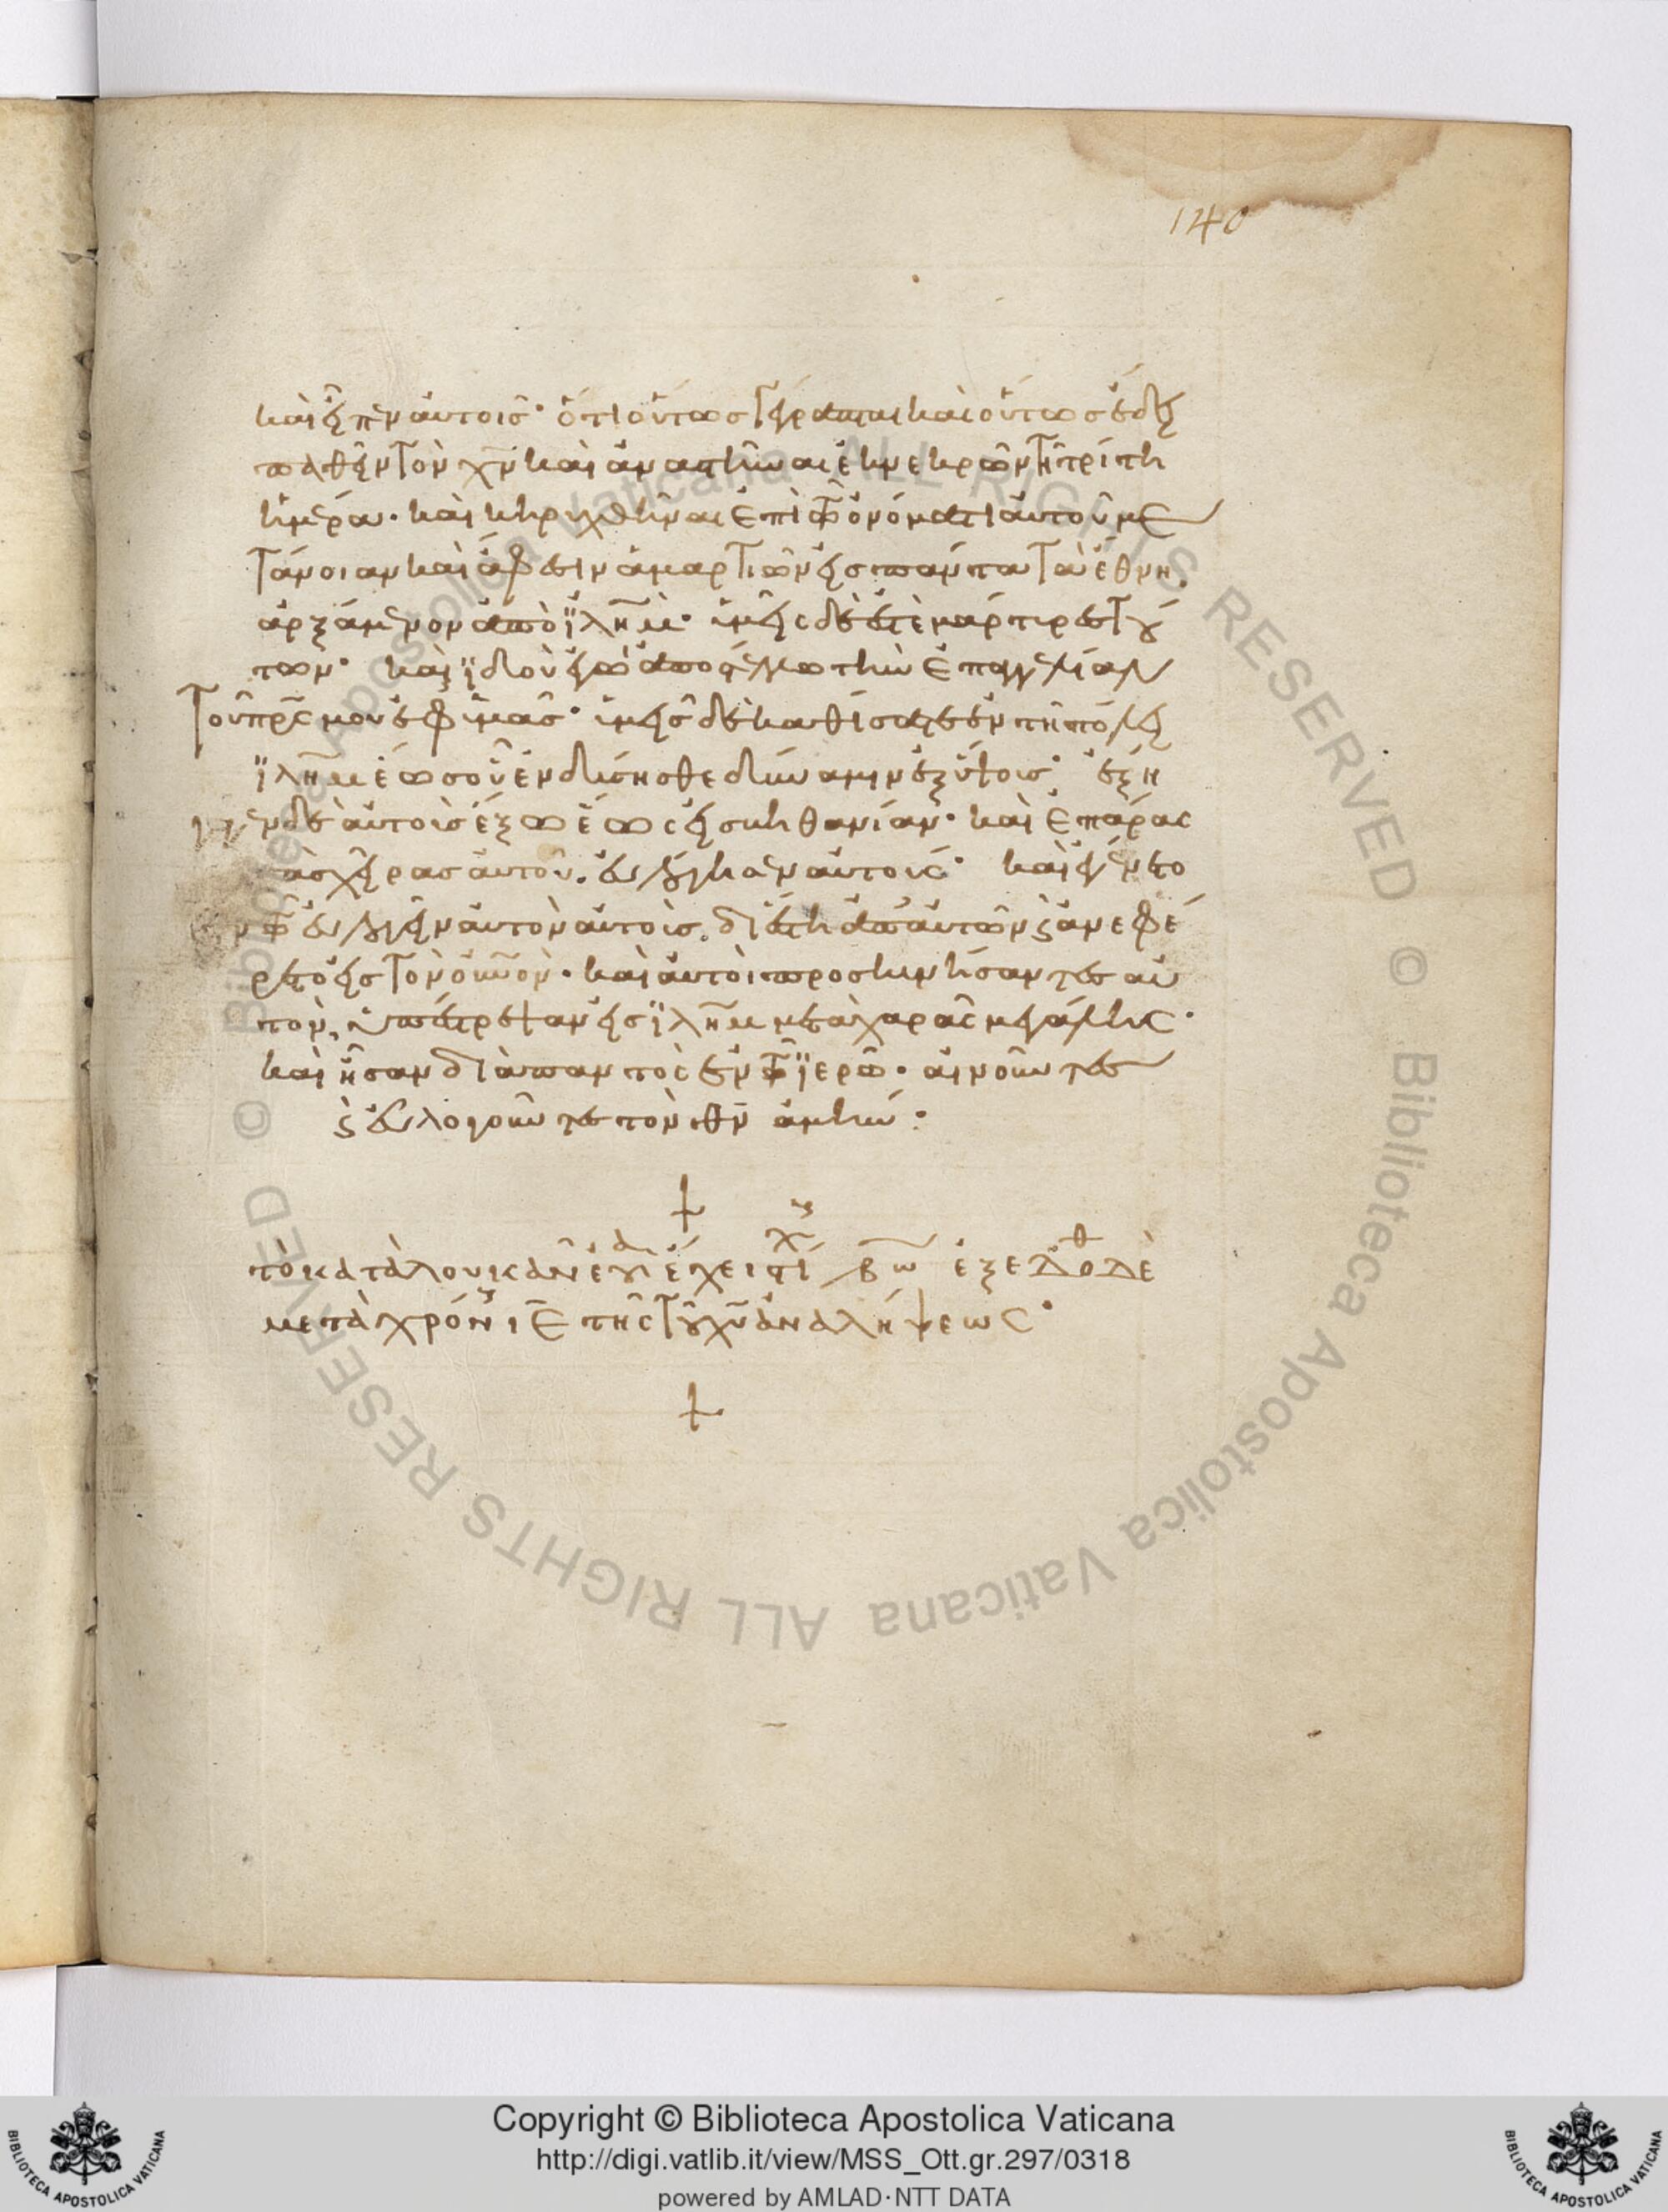 140
καὶ εἶπεν αὐτοῖς· ὅτι οὕτως γέγραπται καὶ οὕτως ἔδει
παθεῖν τὸν χν̄ καὶ ἀναστῆναι ἐκ νεκρῶν τῆ τρίτη
ἡμέρα· καὶ κηρυχθῆναι ἐπὶ τῶ ὀνόματι αὐτοῦ με
τάνοιαν καὶ ἄφεσιν ἁμαρτιῶν εἰς πάντα τὰ ἔθνη.
ἀρξάμενον ἀπὸ ϊλη̄μ· ὑμεῖς δὲ ἐστὲ μάρτυρες τού
των· καὶ ϊδοὺ ἐγὼ ἀποστέλλω τὴν ἐπαγγελίαν
τοῦ πρ̄ς μου ἐφ ὑμᾶς· ὑμεῖς δὲ καθίσατε ἐν τῆ πόλει
ϊλη̄μ ἕως οὗ ἐνδύσησθε δύναμιν ἐξ ὕψους· ἐξή
γεν δὲ αὐτοὺς ἔξω ἕως εἰς βηθανίαν· καὶ ἐπάρας
ὰς χεῖρας αὐτοῦ. εὐλόγησεν αὐτούς· καὶ ἐγένετο
ν τῶ εὐλογεῖν αὐτὸν αὐτοὺς. διέστη ἀπ αὐτῶν ϗ ἀνεφέ
ρετο εἰς τὸν οὐν̄ον· καὶ αὐτοὶ προσκυνήσαντες αὐ
τὸν, ὑπέστρεψαν εἰς ϊλη̄μ μετὰ χαρᾶς μεγάλης·
καὶ ἦσαν διὰ παντὸς ἐν τῶ ϊερῶ· αἰνοῦντες
ϗ εὐλογοῦντες τὸν θν̄ ἀμήν:
τὸ κατὰ λουκᾶν εὐα ἔχει στίχ ͵βω ἐξεδόθ δὲ
μετὰ χρόν ιε̄ τῆς τοῦ χῡ ἀναλήψεως·
Copyright © Biblioteca Apostolica Vaticana
http://digi.vatlib.it/view/MSS_Ott.gr.297/0318
powered by AMLAD·NTT DATA